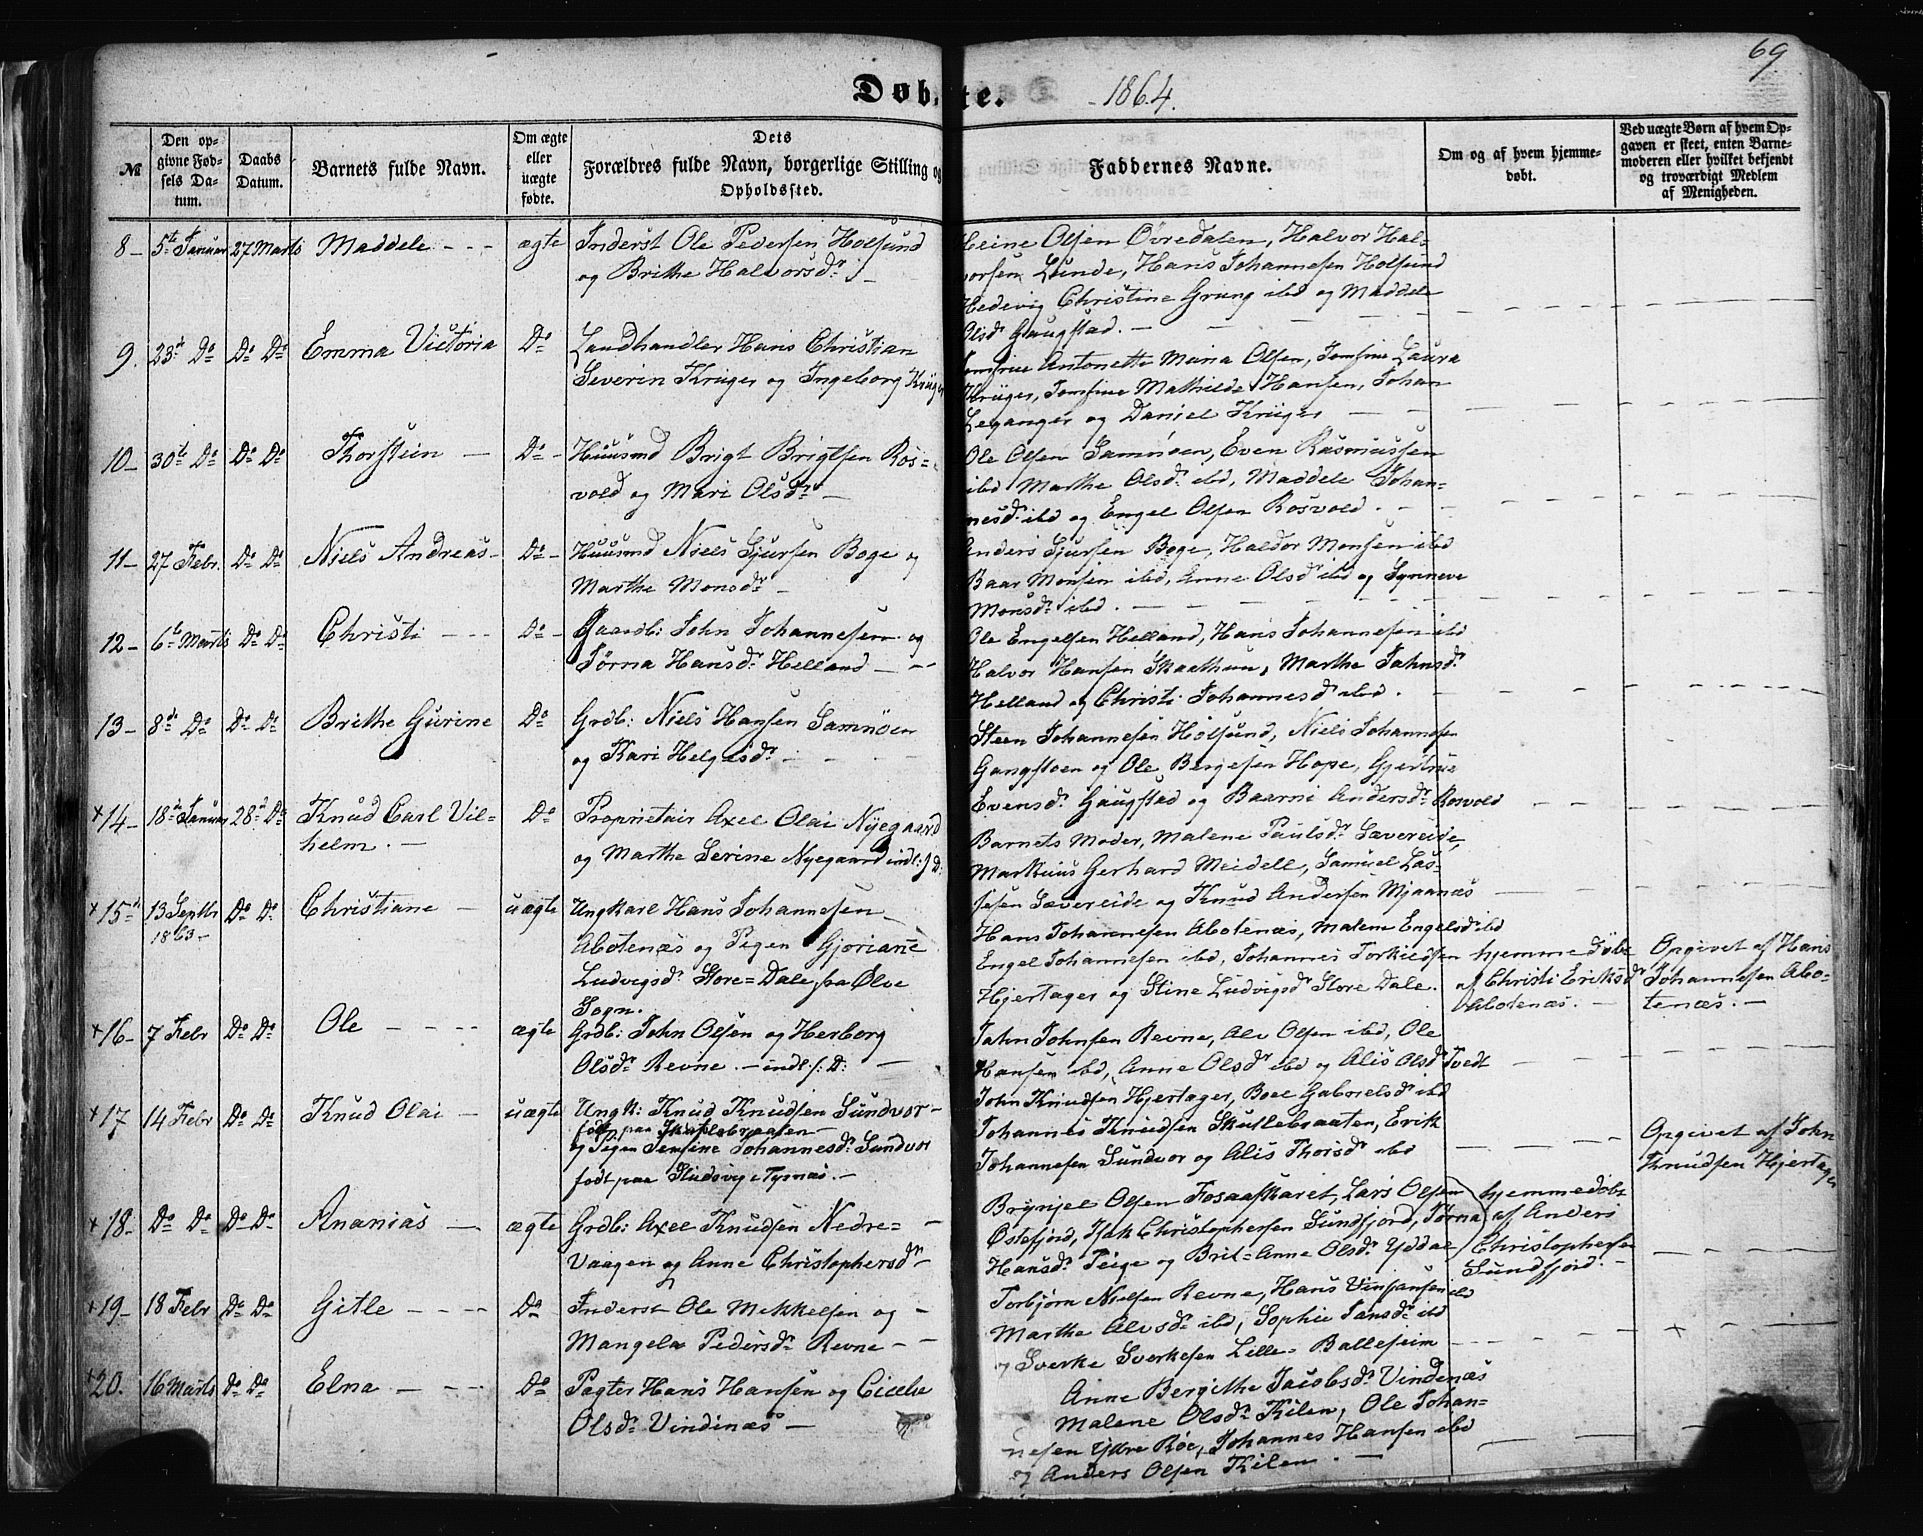 69
Døbte.
1864.
№
Den opgivne Fødsels Datum.
Daabs Datum.
Barnets fulde Navn.
Om ægte eller uægte fødte.
Dets
Forældres fulde Navn, borgerlige Stilling og
Opholdssted.
Faddernes Navne.
Om og af hvem hjemmedøbt.
Ved uægte Børn af hvem Opgaven er skeet, enten Barnemoderen eller hvilket bekjendt og troværdigt Medlem af Menigheden.
8 5te Januar 27 Marts Maddele ægte Inderst Ole Pedersen Holsund
og Brithe Halvorsdr
Heine Olsen Øvredalen, Halvor Hal-
vorsen Lunde, Hans Johannesen Holsund
Hedevig Christine Grung ibd og Maddele
Olsdr Gaugstad.
9. 23de Do Do Do Emma Victoria Do Landhandler Hans Christian
Severin Krüger og Ingeborg Krüger
Jomfrue Antonette Maria Olsen, Jomfrue Laura
Krüger, Jomfrue Mathilde Hansen, Johan
Leganger og Daniel Krüger
10 30te Do Do Do Thorstein Do Huusmd Brigt Brigtsen Ros-
vold og Mari Olsdr
Ole Olsen Samnøen, Even Rasmussen
ibd Marthe Olsdr ibd, Maddele Johan-
nesdr ibd og Engel Olsen Rosvold.
11 27 Febr. Do Do Niels Andreas Do Huusmd Niels Sjursen Boge og
Marthe Monsdr
Anders Sjursen Boge, Haldor Monsen ibd
Baar Monsen ibd, Anne Olsdr ibd og Synneve
Monsdr ibd.
12 6te Marts Do Do Christi Do Gaardb: John Johannesen og
Jørna Hansdr Helland
Ole Engelsen Helland, Hans Johannesen ibd
Halvor Hansen Skaathun, Marthe Johnsdr
Helland og Christi Johannesdr ibd.
13 8de Do Do Do Brithe Gurine Do Grdb: Niels Hansen Samnøen
og Kari Helgesdr
Steen Johannesen Holsund, Niels Johannesen
Gangstøen og Ole Bergesen Hope, Gjertrue
Evensdr Gaugstad og Baarni Andersdr Rosvold
+14 18de Januar 28de Do Knud Carl Vil-
helm. Do Proprietair Axel Olai Nyegaard
og Marthe Serine Nyegaard indl: f. D.
Barnets Moder, Malene Paulsdr Sævereide,
Markuus Gerhard Meidell, Samuel Las-
sesen Sævereide og Knud Andersen Mjaanæs
+15 13 Septbr
1863 Do Do Christiane uægte Ungkarl Hans Johannesen
Abotenæs og Pigen Gjoriane
Ludvigsdr Store=Dale, fra Ølve
Sogn.
Hans Johannesen Abotenæs, Malene Engelsdr ibd
Engel Johannesen ibd, Johannes Torkildsen
Hjertager og Stine Ludvigsdr Store Dale.
hjemme døbt
af Christi Eriksdr
Abotenæs.
Opgivet af Hans
Johannesen Abo-
tenæs.
+16 7 Febr Do Do Ole ægte Grdb: John Olsen og Herborg
Olsdr Revne. indl f: D:
John Johnsen Revne, Alv Olsen ibd, Ole
Hansen ibd, Anne Olsdr ibd og Alis Olsdr Tvedt
+17 14 Febr Do Do Knud Olai uægte Ungk: Knud Knudsen Sundvor
født paa Skutlebraaten
og Pigen Jensine Johannesdr Sundvor
født paa Hudsvig i Tysnæs.
John Knudsen Hjertager, Boel Gabrielsdr ibd
Johannes Knudsen Skutlebraaten, Erik
Johannesen Sundvor og Alis Thorsdr ibd
Opgivet af John
Knudsen Hjertager
+18 Do Do Do Do Ananias ægte Grdb: Axel Knudsen Nedre=
Vaagen og Anne Christophersdr
Brynjel Olsen Fosaafskaret, Lars Olsen
Østefjord, Isak Christophersen Sundfjord, Jørna
Hansdr Teige og Brit=Anne Olsdr Yddal
hjemmedøbt
af Anders
Christophersen
Sundfjord.
+19 18 Febr Do Do Gitle Do Inderst Ole Mikkelsen og
Mangela Pedersdr Revne
Torbjørn Nielsen Revne, Hans Vinsensen ibd
Marthe Alvsdr ibd, Sophie Jansdr ibd
og Sverke Sverkesen Lille=Balleseim
+20. 16 Marts Do Do Elna Do Pagter Hans Hansen og Cicelie
Olsdr Vindinæs
Anne Bergithe Jacobsdr Vindenæs
Malene Olsdr Kilen, Ole Johan-
nesen Ydre Røe, Johannes Hansen ibd
og Anders Olsen Kilen.